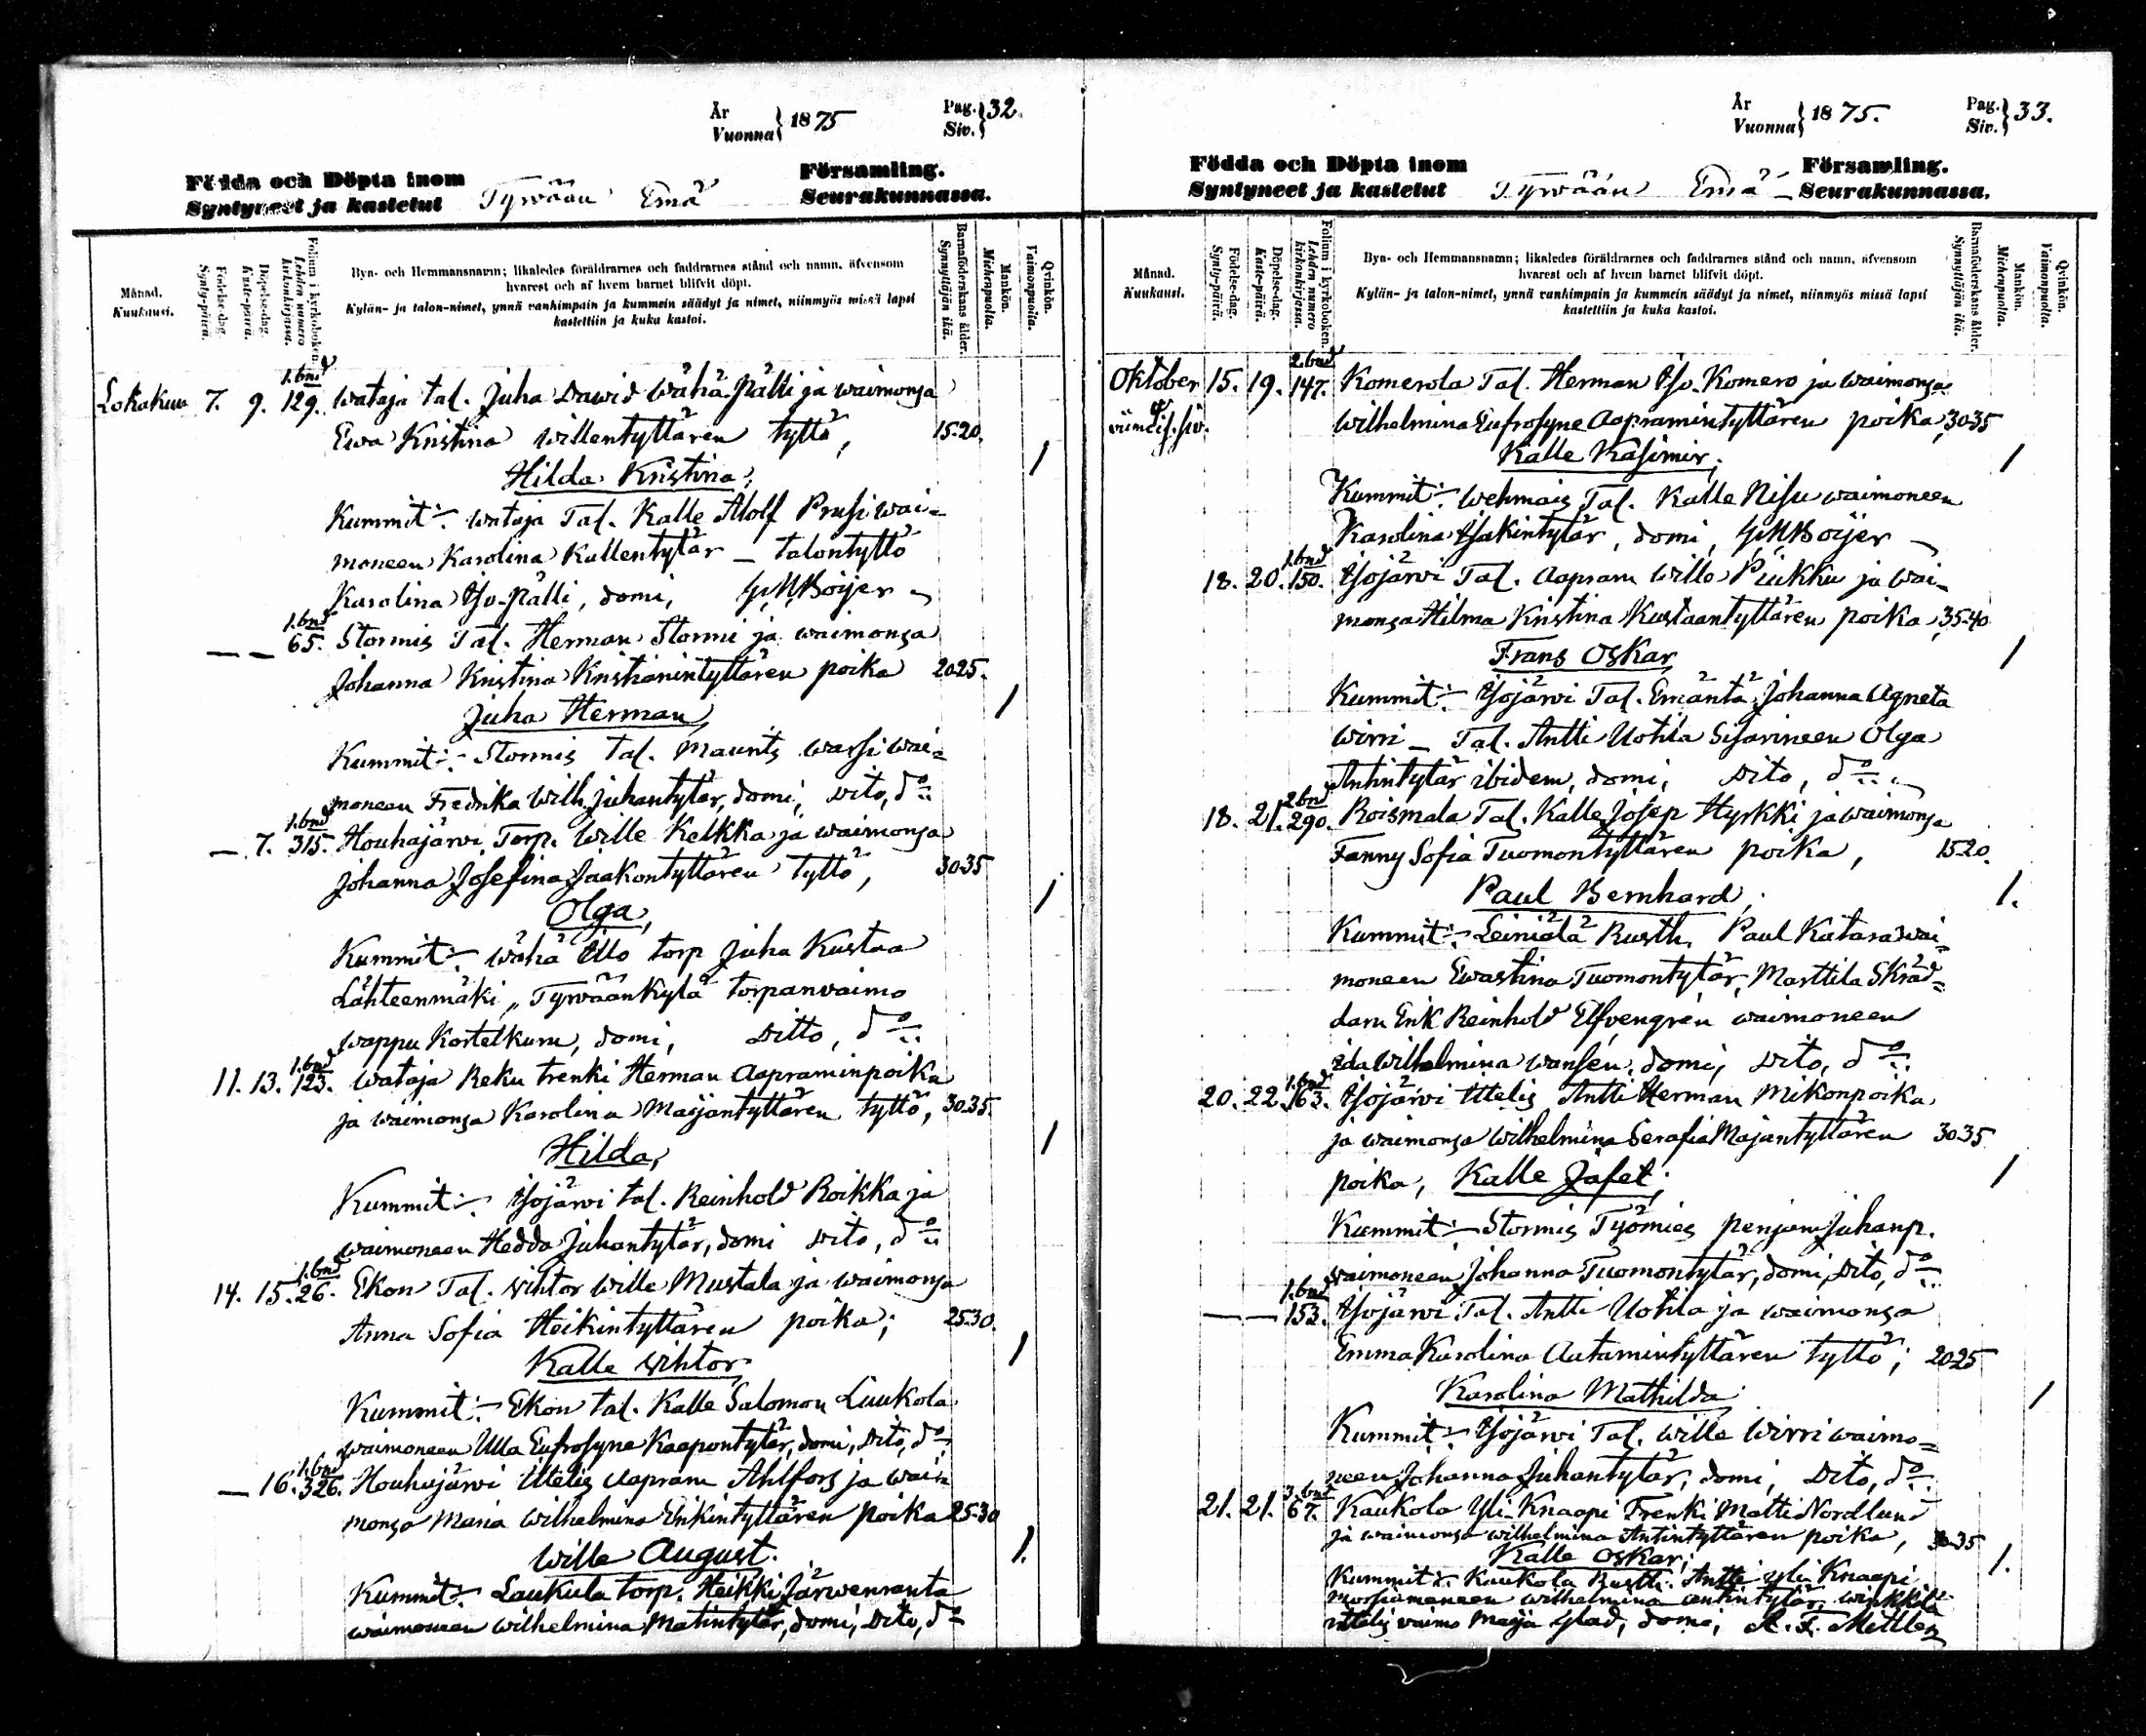 År
Vuonna } 1875
Pag.
Siv. } 32.
Födda och Döpta inom
Syntyneet ja kastetut
Tyrwään Emä
Församling.
Seurakunnassa.
Månad.
Kuukausi.
Födelse-dag.
Synty-päivä.
Döpelse-dag.
Kaste-päivä.
Folium i kyrkoboken.
Lehden numero kirkonkirjassa.
Bya- och Hemmansnamn; likaledes föräldrarnes och faddrarnes stånd och namn, äfvensom
hvarest och af hvem barnet blifvit döpt.
Kylän- ja talon-nimet, ynnä vanhimpain ja kummein säädyt ja nimet, niinmyös missä lapsi
kastettiin ja kuka kastoi.
Barnaföderskans ålder.
Synnyttäjän ikä.
Mankön.
Miehenpuolta.
Qvinkön.
Vaimonpuolta.
Lokakuu 7. 9. 1.bnd 129. Wataja tal. Juha Dawid Wähä-Pälli ja waimonsa
Ewa Kristina Willentyttären tyttö, 15-20.
Hilda Kristina;
Kummit:- Wataja Tal. Kalle Adolf Prusi wai-
moneen Karolina Kallentytär - talontyttö
Karolina Iso-Pälli, domi, G.M. Boijer
— — 1.bnd 65. Stormis Tal. Herman Stormi ja waimonsa
Johanna Kristina Kristianintyttären poika 20-25.
Juha Herman,
Kummit:- Stormis tal. Maunts Warsi wai-
moneen Fredrika Wilh. Juhantytär, domi, Dito, do
— 7. 1.bnd 315. Houhajärvi Torp. Wille Kelkka ja waimonsa
Johanna Josefina Jaakontyttären tyttö, 30-35
Olga,
Kummit:- Wähä Illo torp Juha Kustaa
Lähteenmäki, Tyrwäänkylä torpanvaimo
Wappu Kortelkuru, domi, Ditto, do
11. 13. 1.bnd 123. Wataja Reku trenki Herman Aapraminpoika
ja waimonsa Karolina Maijantyttären tyttö, 30-35.
Hilda,
Kummit:- Isojärwi tal. Reinhold Roikka ja
waimoneen Hedda Juhantytär, domi Dito, do
14. 15. 1.bnd 26. Ekon Tal. Wihtor Wille Mustala ja waimonsa
Anna Sofia Heikintyttären poika; 25-30.
Kalle Wihtor,
Kummit:- Ekon tal. Kalle Salomon Liukola
waimoneen Ulla Eufrosyne Kaapontytär, domi, Dito, do
— 16. 1.bnd 326. Houhujärwi Ittelis Aapram Ahlfors ja wai-
monsa Maria Wilhelmina Erikintyttären poika 25-30
Wille August.
Kummit:- Laukula torp. Heikki Järwenranta
waimoneen Wilhelmina Matintytär, domi, Dito, do
År
Vuonna } 1875.
Pag.
Siv. } 33.
Födda och Döpta inom
Syntyneet ja kastetut
Tyrwään Emä
Församling.
Seurakunnassa.
Månad.
Kuukausi.
Födelse-dag.
Synty-päivä.
Döpelse-dag.
Kaste-päivä.
Folium i kyrkoboken.
Lehden numero kirkonkirjassa.
Bya- och Hemmansnamn; likaledes föräldrarnes och faddrarnes stånd och namn, äfvensom
hvarest och af hvem barnet blifvit döpt.
Kylän- ja talon-nimet, ynnä vanhimpain ja kummein säädyt ja nimet, niinmyös missä lapsi
kastettiin ja kuka kastoi.
Barnaföderskans ålder.
Synnyttäjän ikä.
Mankön.
Miehenpuolta.
Qvinkön.
Vaimonpuolta.
Oktober 15. 19. 2.bnd 147. Komerola Tal. Herman Iso-Komero ja waimonsa
Wilhelmina Eufrosyne Aapramintyttären poika, 30-35
Kalle Kasimir.
Kummit:- Wehmais Tal. Kalle Nisu waimoneen
Karolina Isakintytär, domi, G.M. Boijer
18. 20. 1.bnd 150. Isojärvi Tal. Aapram Wille Piukku ja wai-
monsa Hilma Kristina Kustaantyttären poika, 35-40
Frans Oskar
Kummit:- Isojärvi Tal. Emäntä Johanna Agneta
Wirri - Tal. Antti Uotila Sisarineen Olga
Antintytär ibidem, domi, Dito, do
18. 21. 2.bnd 290. Roismala Tal. Kalle Josep Hyrkki ja waimonsa
Fanny Sofia Tuomontyttären poika, 15-20.
Paul Bernhard;
Kummit:- Leiniälä Rusth. Paul Katara wai-
moneen Ewastina Tuomontytär, Marttila Skräd-
daru Erik Reinhold Elfvengren waimoneen
Ida Wilhelmina Wansen, domi, Dito, do
20. 22. 1.bnd 163. Isojärvi Ittelis Antti Herman Mikonpoika
ja waimonsa Wilhelmina Serafia Majantyttären 30-35
poika, Kalle Jafet;
Kummit:- Stormis Työmies Penjam Juhanp.
waimoneen Johanna Tuomontytär, domi, Dito, do
— — 1.bnd 153. Isojärvi Tal. Antti Uotila ja waimonsa
Emma Karolina Aatamintyttären tyttö; 20-25
Karolina Mathilda
Kummit:- Isojärvi Tal. Wille Wirri waimo-
neen Johanna Juhantytär, domi, Dito, do
21. 21. 3.bnd 67. Kaukola Yli-Knaapi Trenki Matti Nordlund
ja waimonsa Wilhelmina Antintyttären poika, 30-35
Kalle Oskar;
Kummit:- Kaukola Rustti. Antti yli Knaapi
morsiameneen Wilhelmina Antintytär, Winkkilä
ittelis vaimo Maija Glad, domi, A. F. Mittler